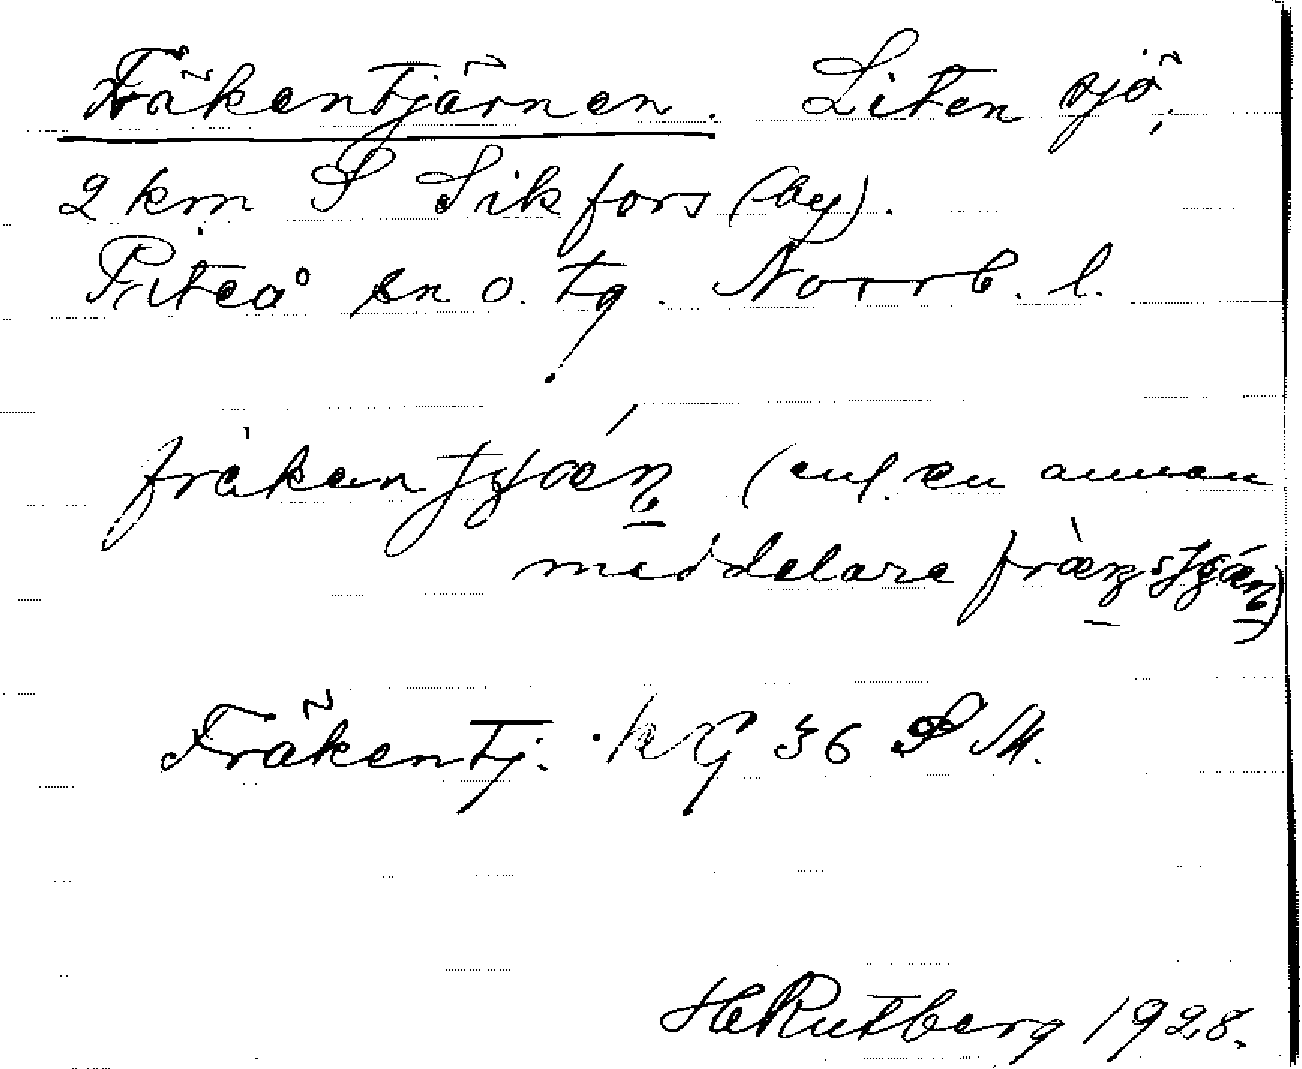 Fräkentjärnen. Liten sjö,
2 km S Sikfors (by).
Piteå sn o. tg. Norrb. l.
(enl. en annan
meddelare
Fräkentj. kG 36 S M.
H Rutberg 1928.